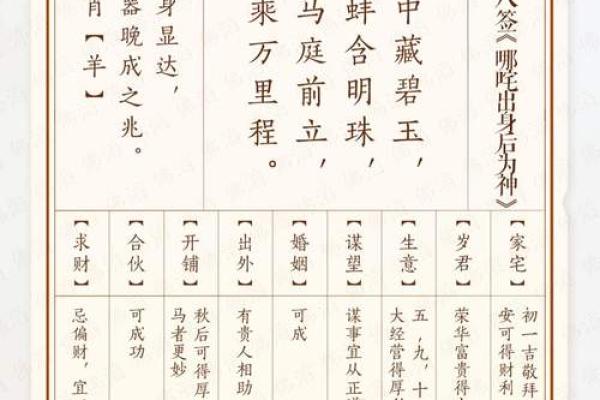 签《哪咤出身后为神》
中藏碧玉，
蚌含明珠，
马庭前立，
乘万里程。
身显达，
器晚成之兆。
肖【羊】
【家宅】
【岁君】
【生意】
【谋望】
【婚姻】
【出外】
【开铺】
【合伙】
【求财】
初一吉敬拜
安可得财利
荣华富贵得
五，九，十
大经营得厚
谋事宜从正
可成
有贵人相助
秋后可得厚
马者更妙
可成功
忌偏财，宜